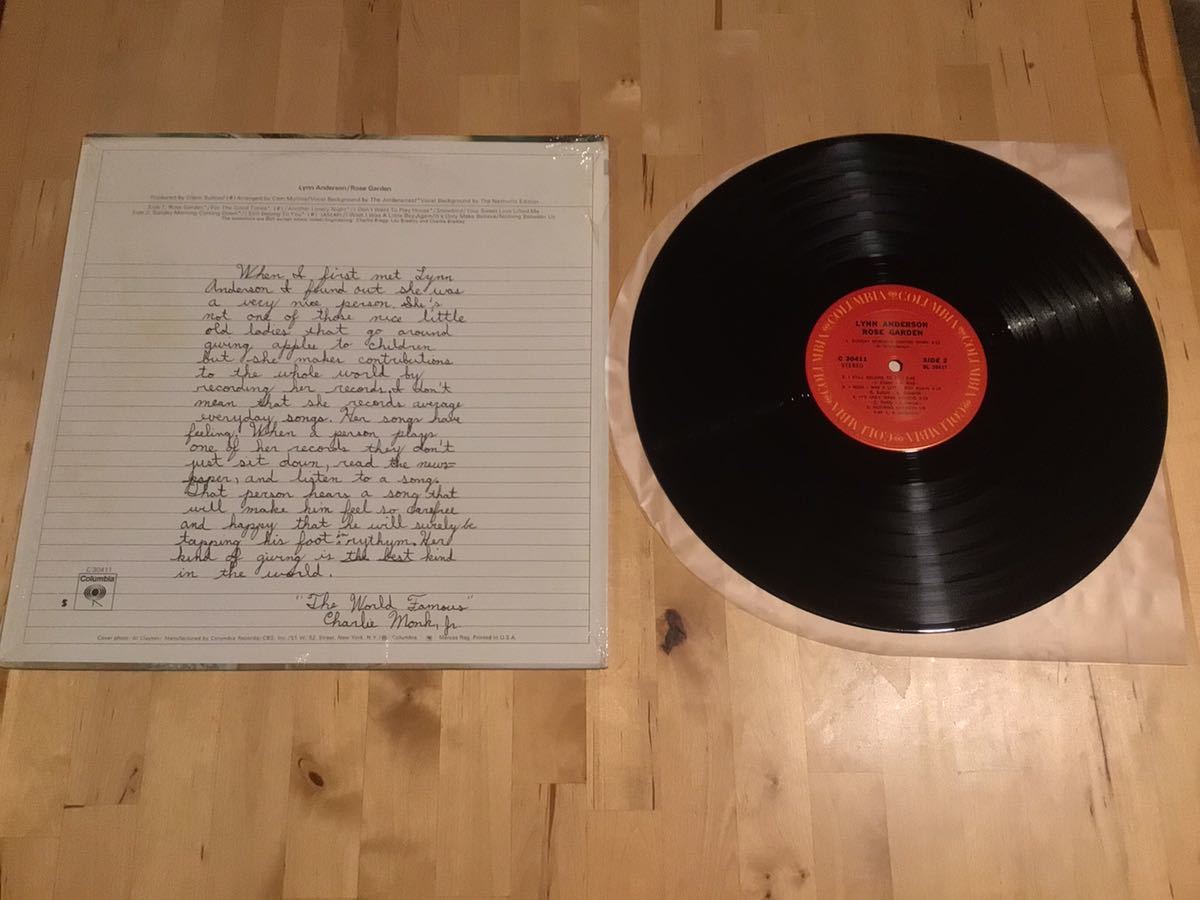 Lynn Anderson/Rose Garden
Produced by Glenn Sutton/(#) Arranged by Cam Mullins/Vocal Background by The Jordanaires/*Vocal Background by The Nashville Edition
Side 1: Rose Garden*/For The Good Times* (#)/Another Lonely Night*/I Don't Want To Play House*/Snowbird/Your Sweet Love Lifted Me
Side 2: Sunday Morning Coming Down*/I Still Belong To You* (#) /I Wish I Was A Little Boy Again/It's Only Make Believe/Nothing Between Us
When I first met Lynn
Anderson I found out she was
a very nice person. She's
not one of those nice little
old ladies that go around
giving apples to children
but she makes contributions
to the whole world by
recording her records. I don't
mean that she records average
everyday songs. Her songs have
feeling. When a person plays
one of her records they don't
just sit down, read the news=
paper, and listen to a song.
That person hears a song that
will make him feel so carefree
and happy that he will surely be
tapping his foot in rythym. Her
kind of giving is the best kind
in the world.
"The World Famous"
Charlie Monk, Jr.
C 30411
Columbia
S
Cover photo: Al Clayton/Manufactured by Columbia Records/CBS, Inc./51 W. 52 Street, New York, N.Y./® Columbia, Marcas Reg. Printed in U.S.A.
COLUMBIA COLUMBIA COLUMBIA COLUMBIA COLUMBIA COLUMBIA
LYNN ANDERSON
ROSE GARDEN
1. SUNDAY MORNING COMING DOWN
C 30411 SIDE 2
STEREO BL 30411
2. I STILL BELONG TO YOU
3. I WISH I WAS A LITTLE BOY AGAIN
4. IT'S ONLY MAKE BELIEVE
5. NOTHING BETWEEN US